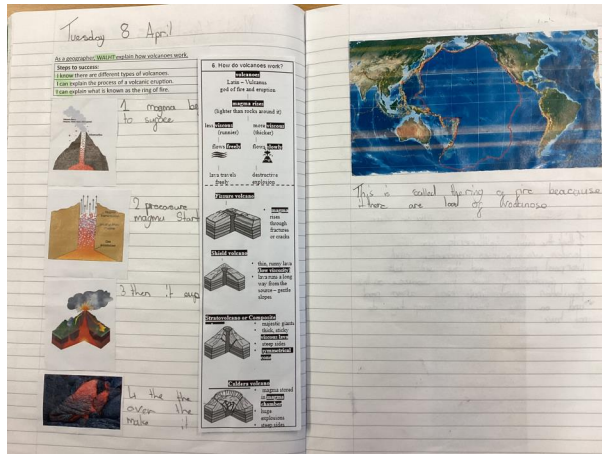 Tuesday 8 April
As a geographer, WALHT explain how volcanoes work.
Steps to success:
I know there are different types of volcanoes.
I can explain the process of a volcanic eruption.
I can explain what is known as the ring of fire.
1 magma be
to
2
magmu Start
3 then it eup
is the the
over the
make it
6. How do volcanoes work?
volcanoes
Latin – Vulcanus
god of fire and eruption
magma rises
(lighter than rocks around it)
less viscous
(runnier)
more viscous
(thicker)
flows freely
flows slowly
lava travels
freely
destructive
explosion
Fissure volcano
magma
rises
through
fractures
or cracks
Shield volcano
thin, runny lava
(low viscosity)
lava runs a long
way from the
source – gentle
slopes
Stratovolcano or Composite
majestic giants
thick, sticky
viscous lava
steep sides
symmetrical
Caldera volcano
magma stored
in magma
chamber
huge
explosions
steep sides
This is called of
there are of